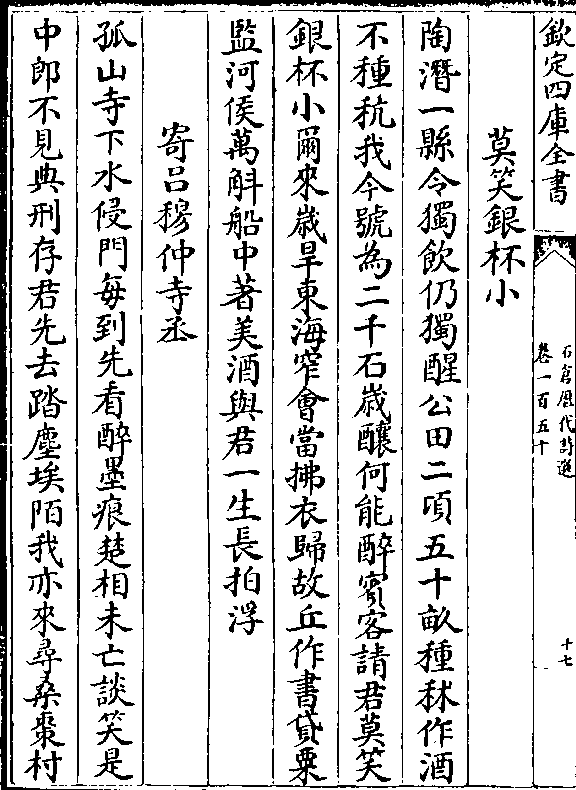 欽定四庫全書
石倉歷代詩選
卷一百五十
十七
莫笑銀杯小
陶潛一縣令獨飲仍獨醒公田二項五十畝種秫作酒
不種秔我今號為二千石歲釀何能醉賓客請君莫笑
銀杯小爾來歲旱東海窄會當拂衣歸故丘作書貸粟
監河侯萬斛船中著美酒與君一生長拍浮
寄吕穆仲寺丞
孤山寺下水侵門每到先看醉墨痕楚相未亡談笑是
中郎不見典刑存君先去踏塵埃陌我亦來尋桑棗村